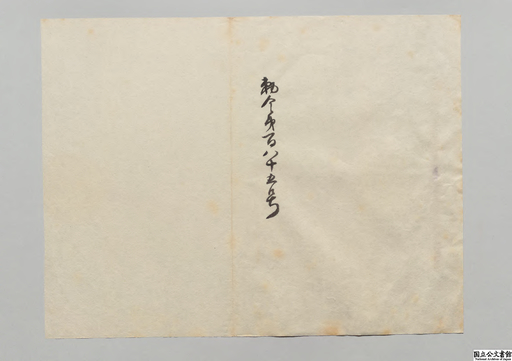 勅令第百八十五号
国立公文書館
National Archives of Japan